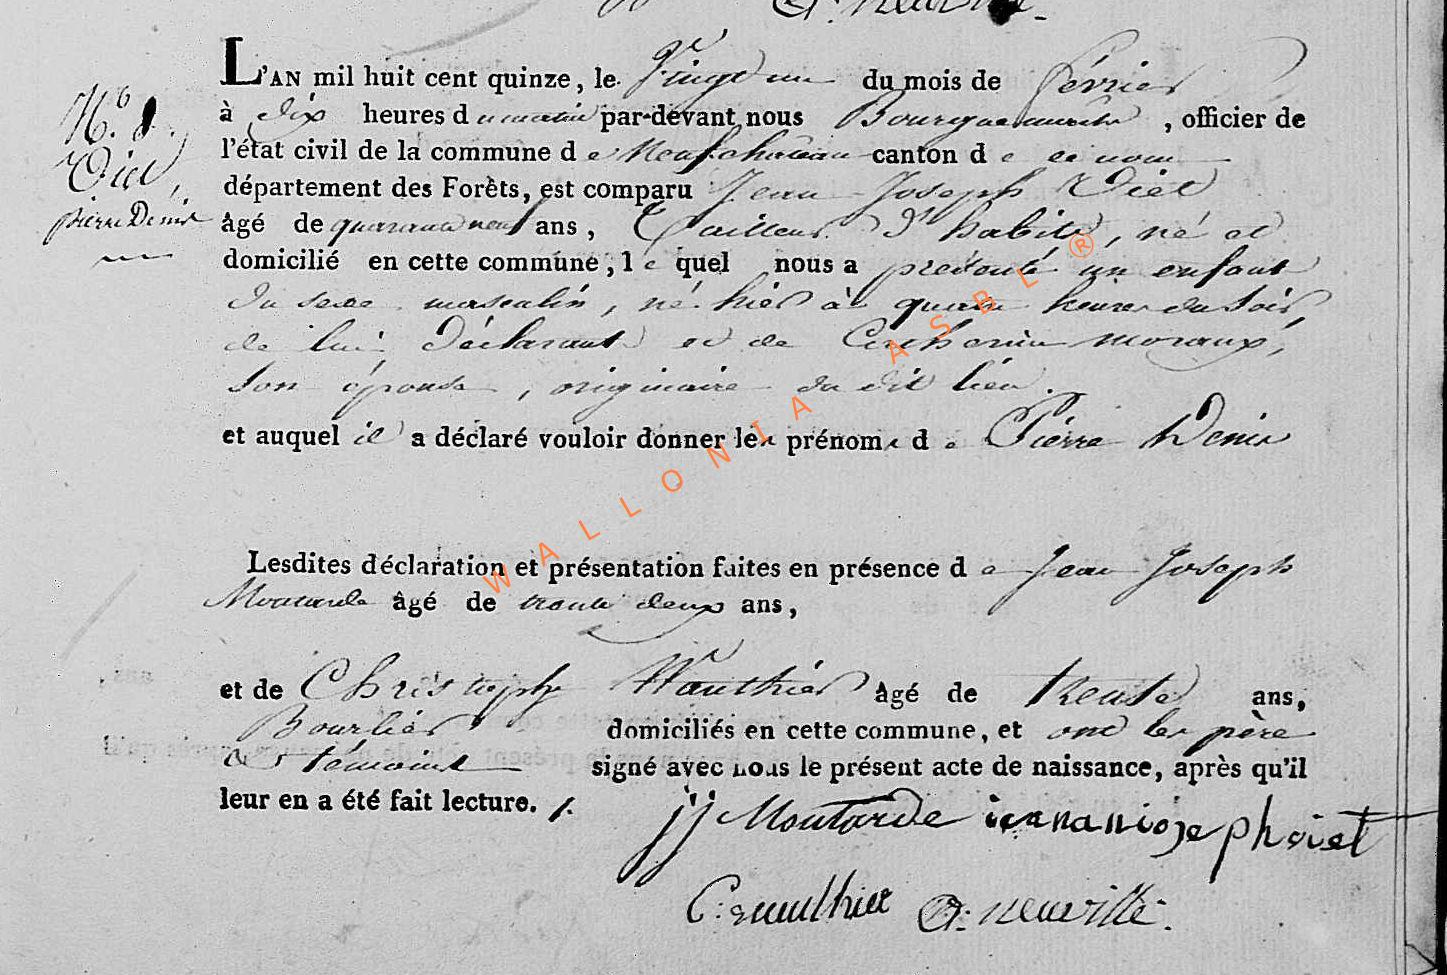 A. Neuville.
L'AN mil huit cent quinze, le Vingt un du mois de février
N.º 8.
à dix heures du matin par-devant nous Bourguemaitre, officier de
l'état civil de la commune de Neufchateau canton de ce nom
Viet,
département des Forêts, est comparu Jean Joseph Viet
pierre Denis
âgé de quarante neuf ans, Tailleur d'habits, né et
domicilié en cette commune, le quel nous a presenté un enfant
du sexe masculin, né hier à quatre heures du soir,
de lui déclarant et de Catherine Moraux,
son épouse, originaire du dit lieu.
et auquel il a déclaré vouloir donner les prénoms de Pierre Denis
Lesdites déclaration et présentation faites en présence de Jean Joseph
Moutarde âgé de trente deux ans,
et de Christophe Wauthier âgé de trente ans,
Bourlier domiciliés en cette commune, et ont les père
et témoins signé avec nous le présent acte de naissance, après qu'il
leur en a été fait lecture.
jj Moutarde jeannajosephviet
C. wauthier A. neuville.
WALLONIA ASBL ®